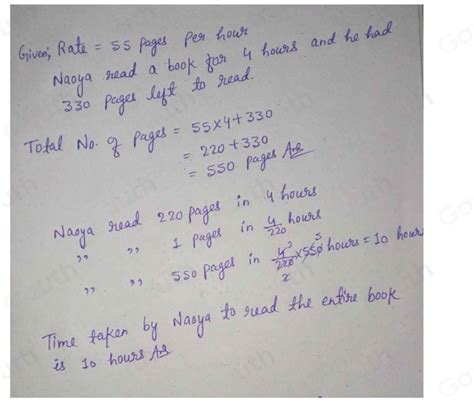 Given; Rate = 55 pages per hour
Naoya read a book for 4 hours and he had
330 pages left to read.
Total No. of pages = 55×4+330
= 220+330
= 550 pages Ans
Naoya read 220 pages in 4 hours
,, ,, 1 pages in 4/220 hours
,, ,, 550 pages in 4/220 × 550 hours = 10 hour
Time taken by Naoya to read the entire book
is 10 hours Ans